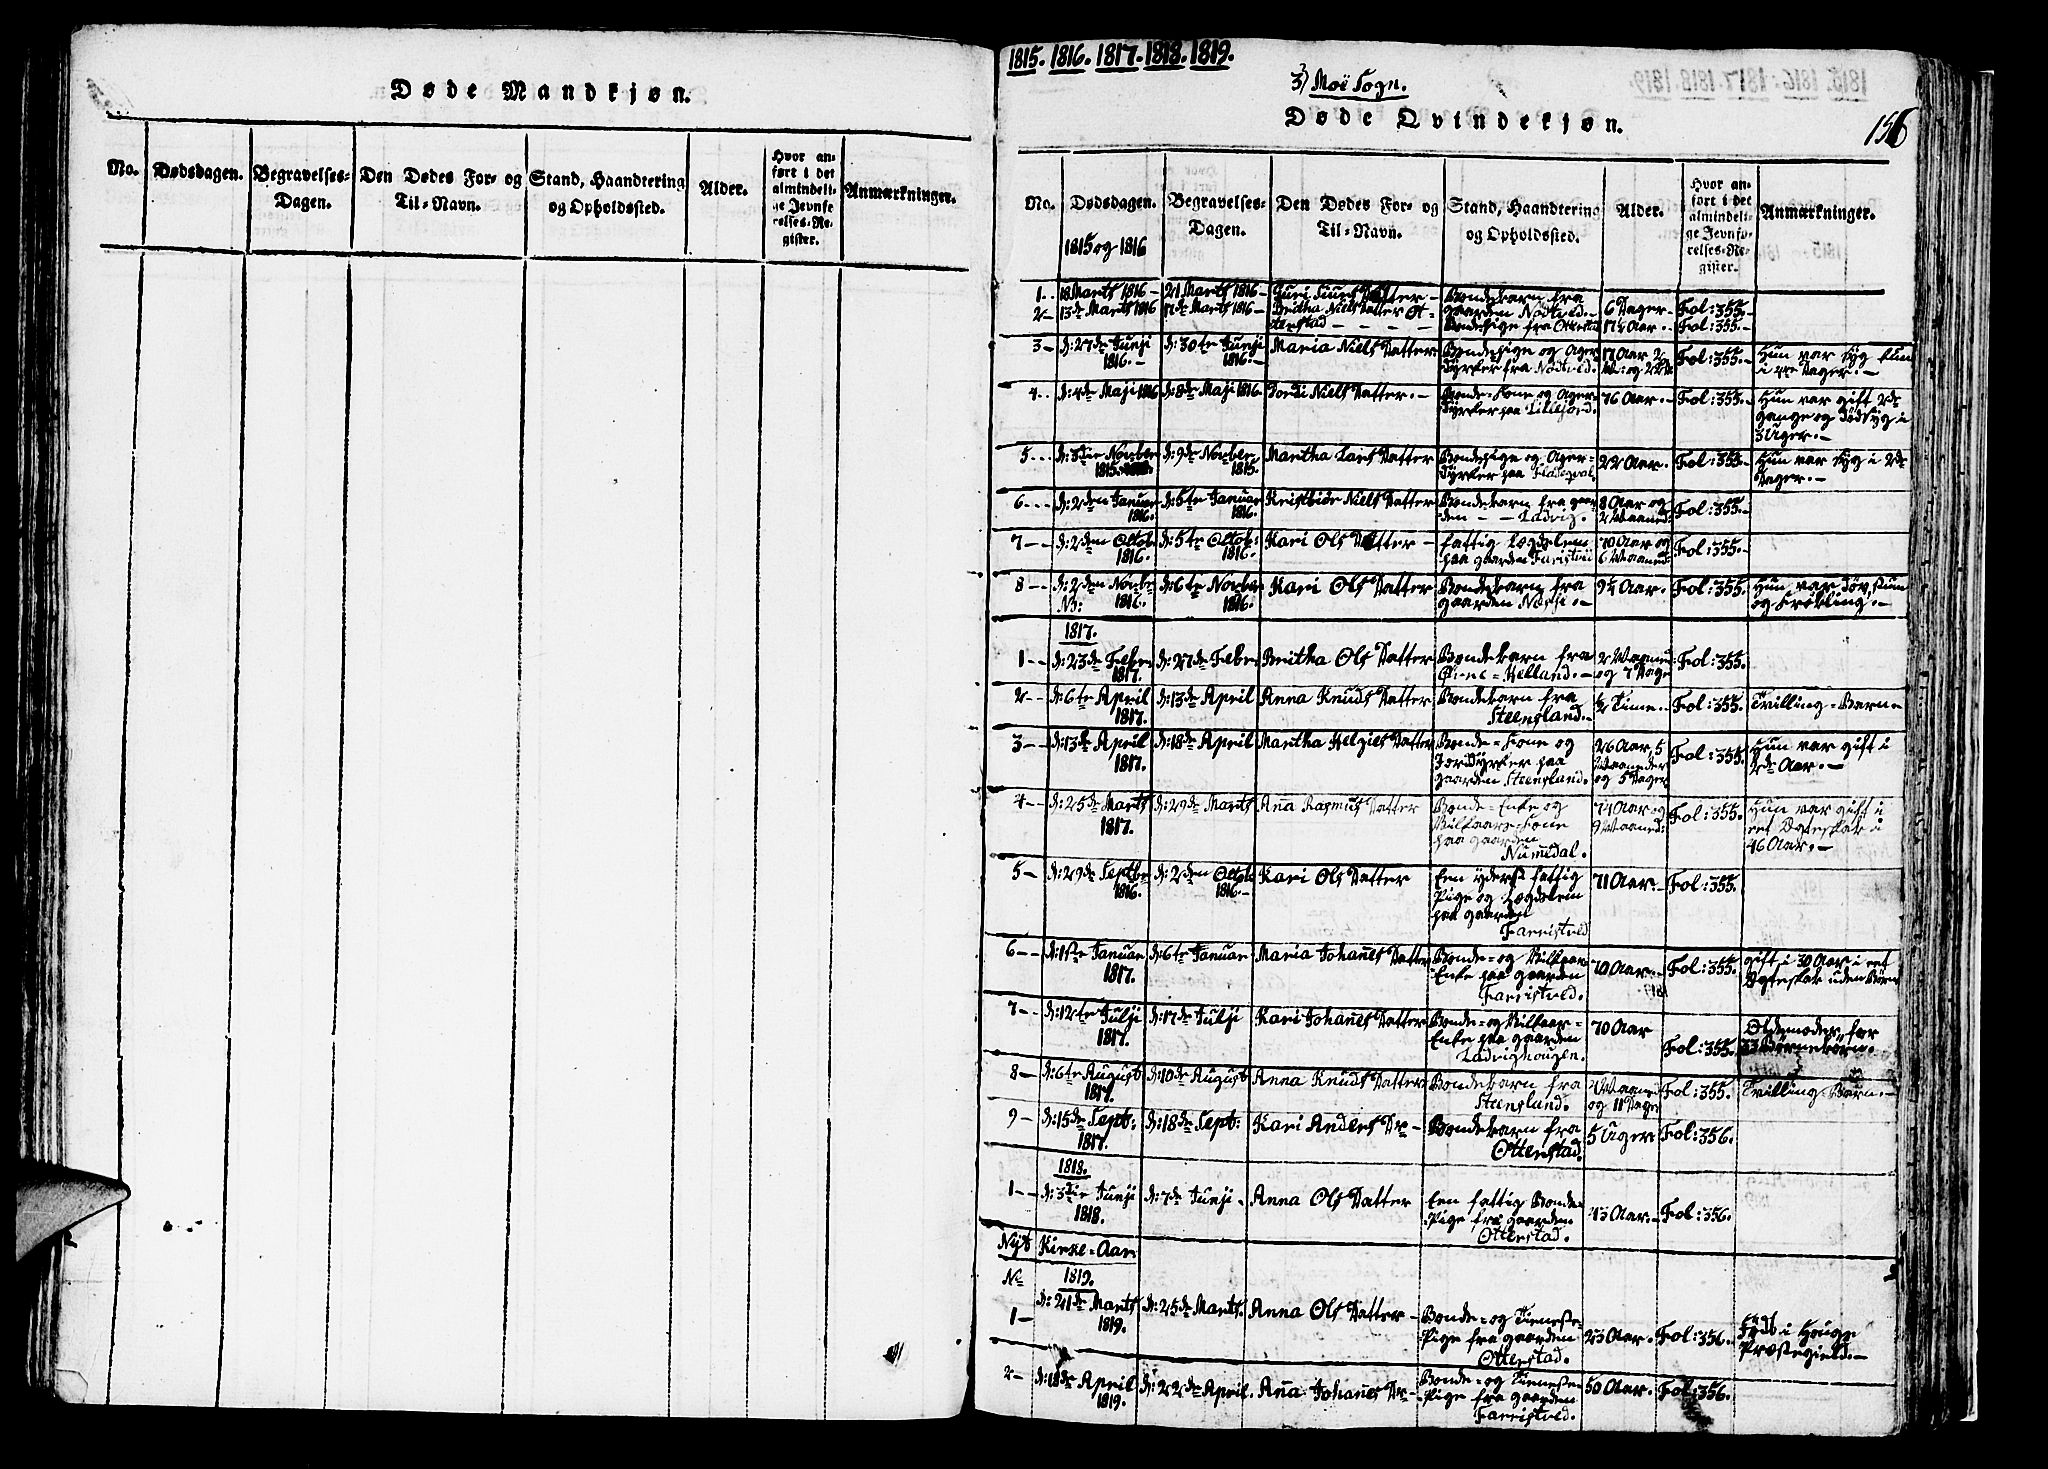 Døde Mandkjøn.
No.
Dødsdagen.
Begravelses-
Dagen.
Den Dødes For- og
Til-Navn.
Stand, Haandtering
og Opholdssted.
Alder.
Hvor an-
ført i det
almindeli-
ge Jevnfø-
relses-Re-
gister.
Anmærkninger.
1815. 1816. 1817. 1818. 1819.
3) Moe Sogn.
Døde Qvindekjøn.
156
No.
Dødsdagen.
1815 og 1816
Begravelses-
Dagen.
Den Dødes For- og
Til-Navn.
Stand, Haandtering
og Opholdssted.
Alder.
Hvor an-
ført i det
almindeli-
ge Jevnfø-
relses-Re-
gister.
Anmærkninger.
1.. 18 Marts 1816 21 Marts 1816 Datter Bondebarn fra gaarden Nodtved 6 Dager Fol: 355.
2 13de Marts 1816 17de Marts 1816 Britha Niels Datter Otterstad Bondepige fra Otterstad 17½ Aar. Fol: 355.
3 d: 27de Junji 1816. d: 30te Junji 1816. Maria Niels Datter Bondepige og Ager Dyrker fra Nodtved. 17 Aar Fol: 355. Hun var syg kun i Dager.
4.. d: 4de Maji 1816 d: 8de Maji 1816 Niels Datter. Bonde-Kone og Ager Dyrker paa Lillejord. 76 Aar. Fol: 355. Hun var gift 2de gange og Dødsyg i 3 Uger.
5... d: 3die Novber 1815. d: 9de Novber 1815. Martha Lars Datter Bondepige og Ager-Dyrker paa 22 Aar. Fol: 355. Hun var syg i Dager.
6... d: 2den Januar 1816. d: 5te Januar 1816. Niels Datter Bondebarn fra gaarden Ladvig. 8 Aar og 2 Maaned: Fol: 355.
7 d: 2den Octob: 1816. d: 5te Octob: 1816. Kari Ols Datter fattig Lægdslem paa gaarden 70 Aar og 6 Maaned: Fol: 355.
8 d: 2den Novbr 1816. d: 6te Novber 1816. Kari Ols Datter Bondebarn fra gaarden Næsse. 9½ Aar. Fol: 355. Hun var Døv, Stum og Krøbling.
1817.
1 d: 23de Febr: 1817. d: 27de Febr: Britha Ols Datter Bondebarn fra Helland. 2 Maaned og 7 Dage Fol: 355.
2 d: 6te April 1817. d: 13de April Anna Knuds Datter Bondebarn fra Steensland. ½ Time. Fol: 355. Tvilling-Barn
3 d: 13de April 1817. d: 18de April Martha Helgies Datter Bonde-Kone og Jorddyrker paa gaarden Steensland. 26 Aar, 5 Maaneder og 5 Dager Fol: 355. Hun var gift i 2de Aar.
4 d: 25de Marts 1817. d: 29de Marts Ana Rasmus Datter Bonde-Enke og Vilkaars-Kone paa gaarden Numedal. 74 Aar og 9 Maaned: Fol: 355. Hun var gift i eet Egteskab i 46 Aar.
5 d: 29de Septbr 1816. d: 2den Octob 1816. Kari Ols Datter Een yderst fattig Pige og Lægdslem paa gaarden Farristved 71 Aar. Fol: 355.
6 d: 1ste Januar 1817. d: 6te Januar Maria Johanes Datter Bonde- og Vilkaars-Enke paa gaarden Farristved. 70 Aar. Fol: 355. gift i 30 Aar i eet Egteskab uden Børn
7 d: 12te Julji 1817. d: 17de Julji Kari Johanes Datter Bonde- og Vilkaar-Enke paa gaarden Ladvighougen. 70 Aar Fol: 355. Oldemoder for 33 Børnebørn.
8 d: 6te August 1817. d: 10de August Anna Knuds Datter Bondebarn fra Steensland. 4 Maaned og 11 Dager Fol: 355. Tvilling-Barn.
9 d: 15de Sept: 1817. d: 18de Sept: Kari Anders Dr Bondebarn fra Otterstad. 5 Uger Fol: 356.
1818.
1 d: 3die Junji 1818. d: 7de Junji Anna Ols Datter Een fattig Bonde-Pige fra gaarden Otterstad. 43 Aar. Fol: 356.
Nyt Kirke-Aar
No 1819.
1 d: 21de Marts 1819. d: 25de Marts. Anna Ols Datter Bonde- og Tieneste-Pige fra gaarden Otterstad. 23 Aar. Fol: 356. Født i Houge Præstegield.
2 d: 18de April 1819. d: 22de April. Ana Johanes Dr Bonde- og Tieneste-Pige fra gaarden Farristved. 50 Aar. Fol: 356.